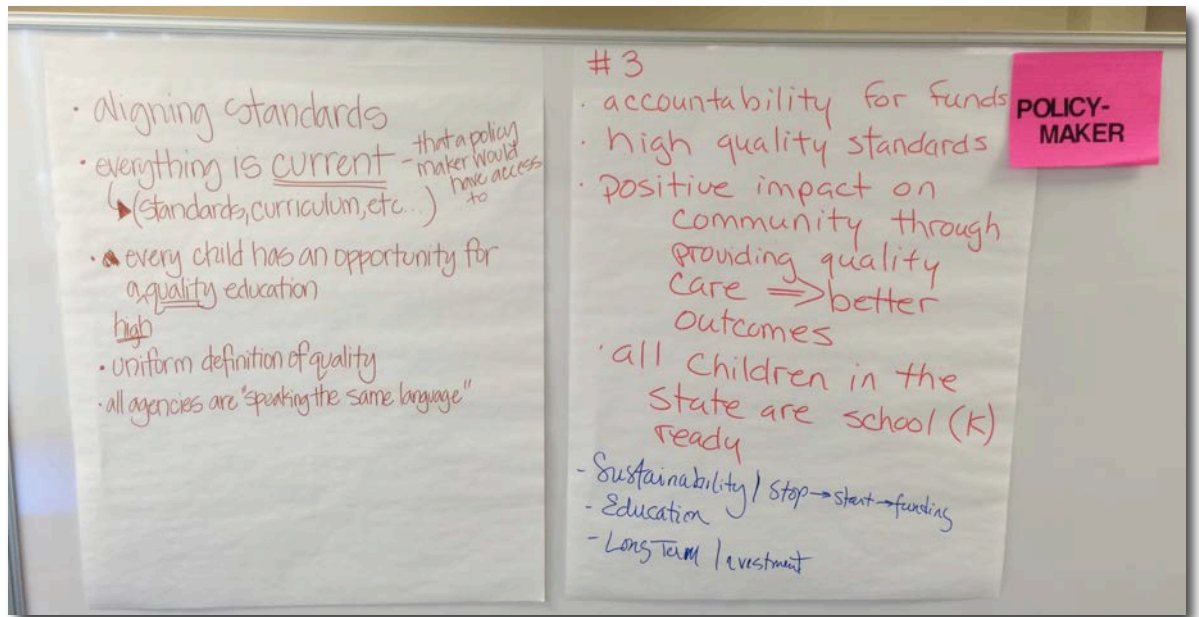 · aligning standards
· everything is current - that a policy
maker would
have access
to
↳(standards, curriculum, etc...)
· every child has an opportunity for
a quality education
high
· uniform definition of quality
· all agencies are "speaking the same language"
#3
· accountability for funds
· high quality standards
· positive impact on
community through
providing quality
care ⇒ better
outcomes
· all children in the
state are school (K)
ready
- Sustainability / Stop→start→funding
- Education
- Long Term Investment
POLICY-
MAKER